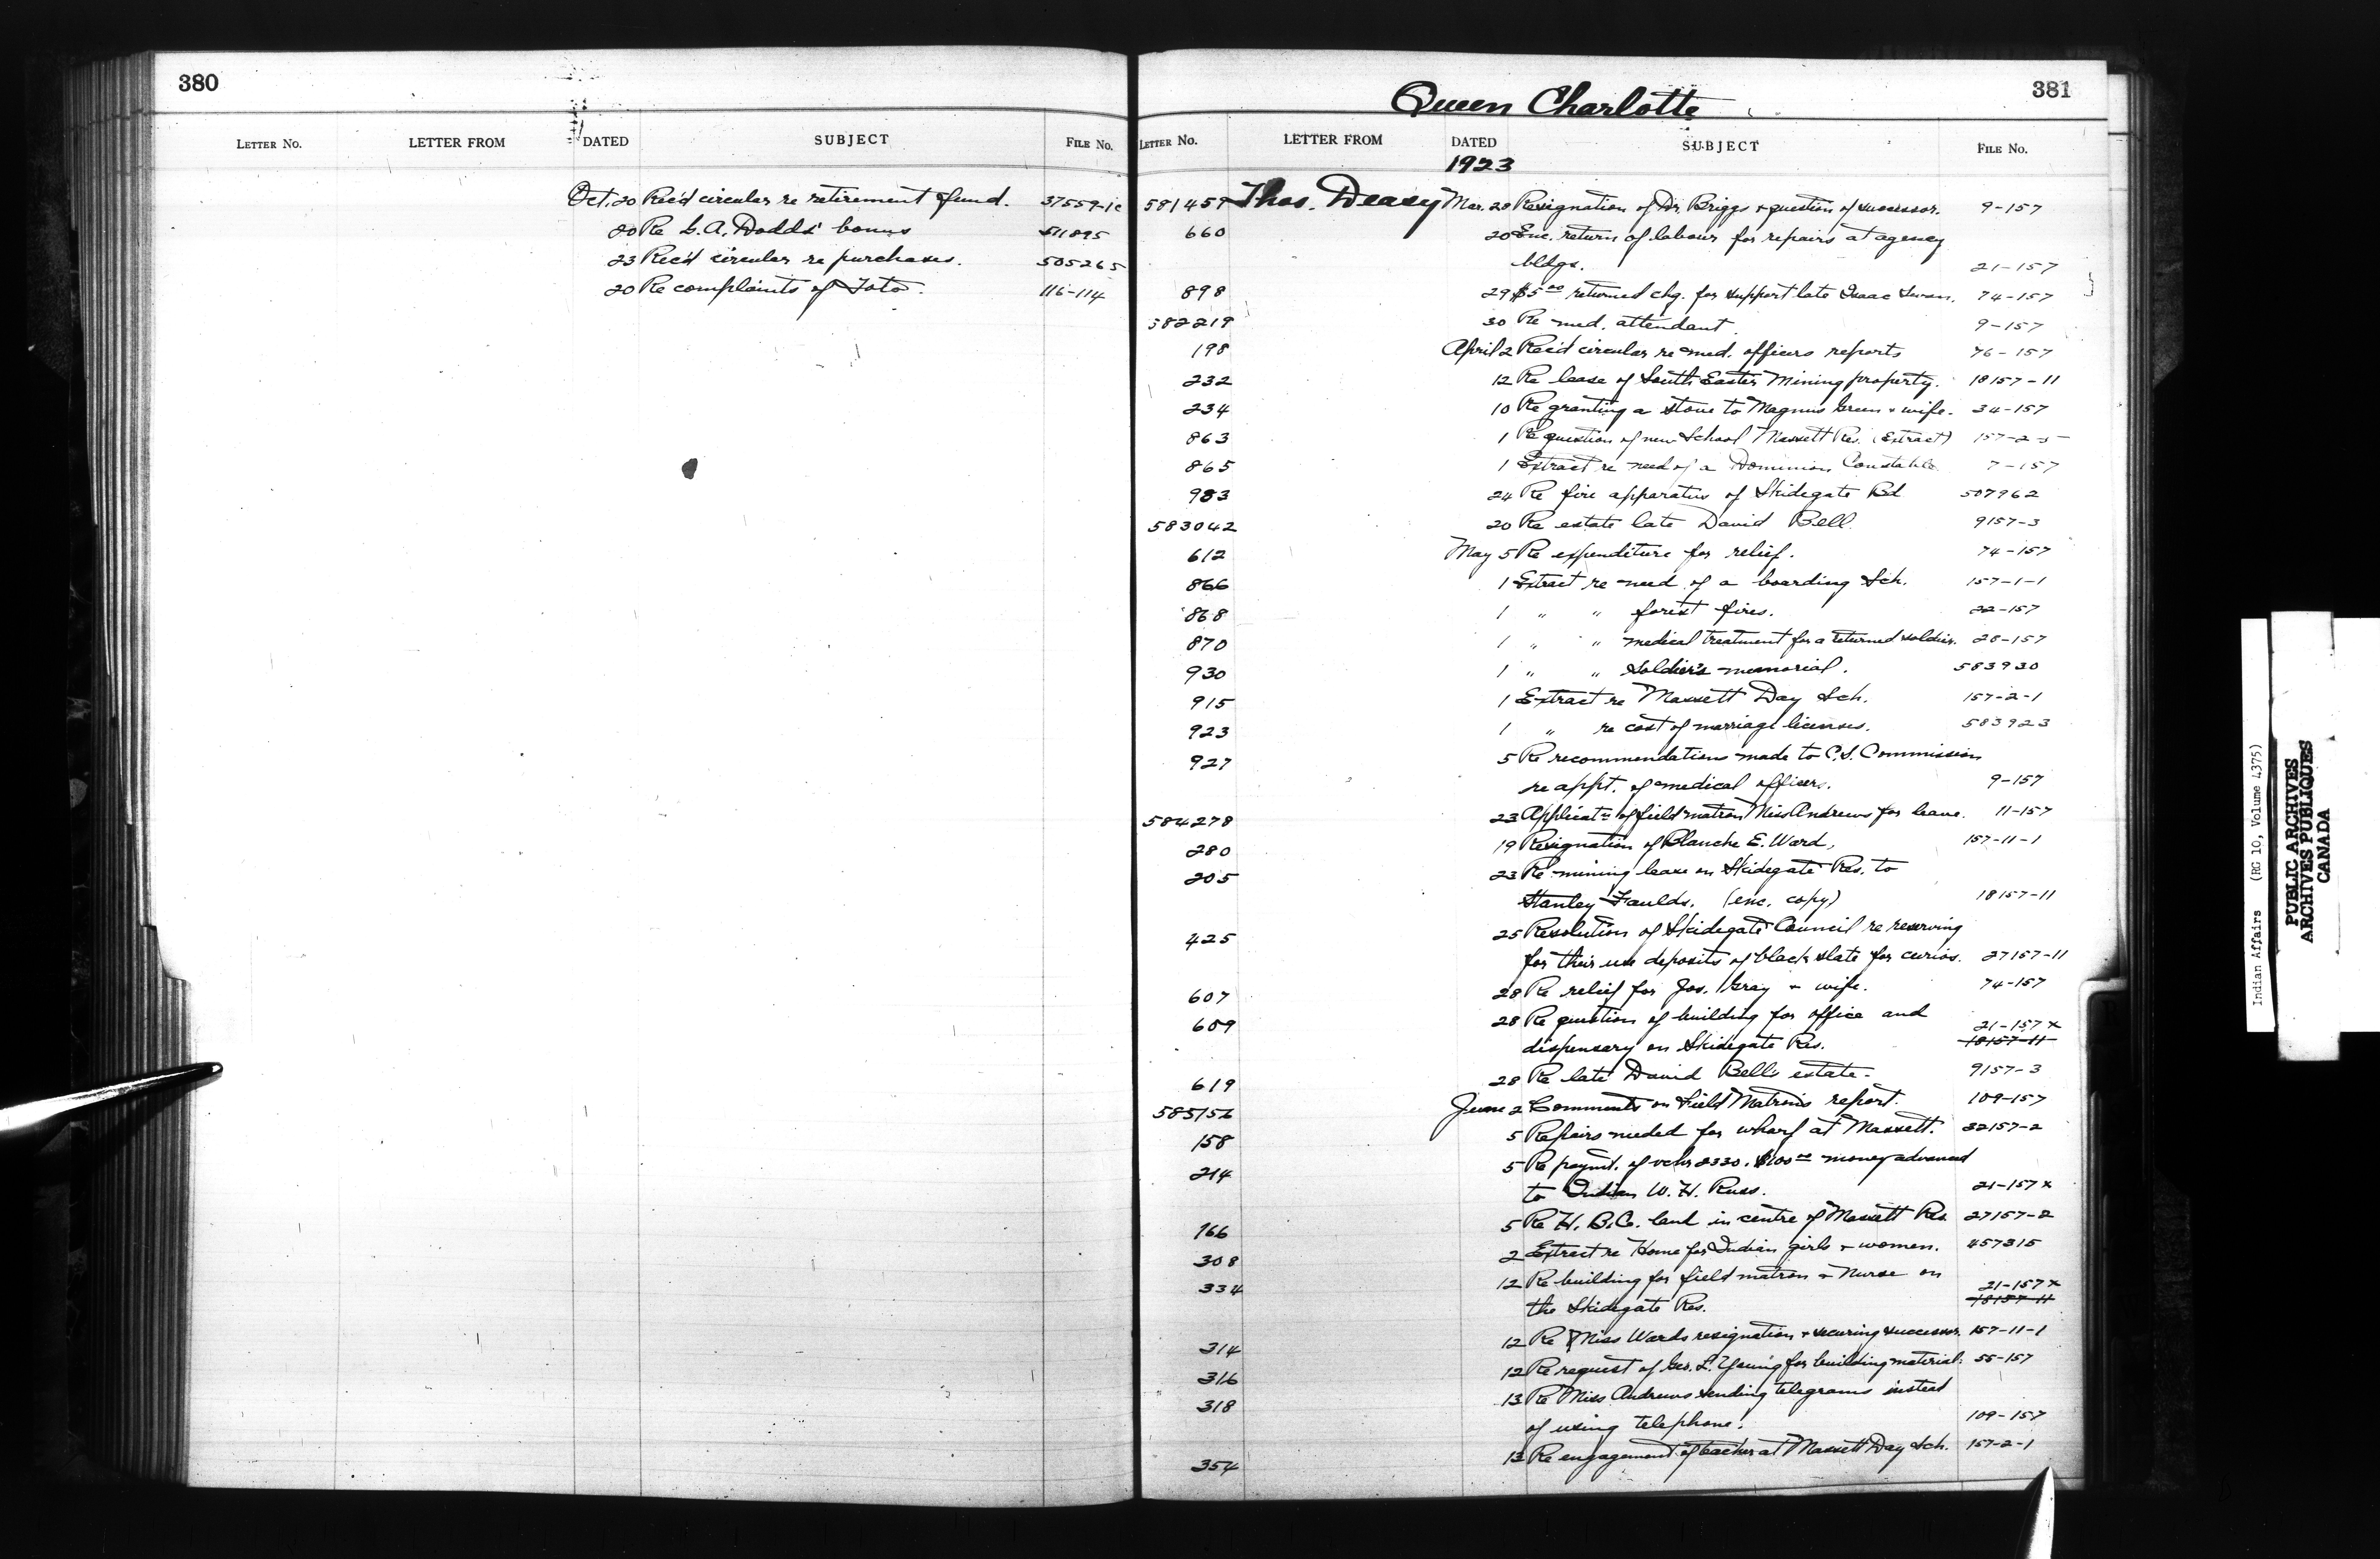 380
LETTER NO. LETTER FROM DATED SUBJECT FILE NO.
Oct. 20 Rec'd circular re retirement fund. 37559-1c
20 Re G. A. Dodds' bonus 511895
23 Rec'd circular re purchases. 505265
20 Re complaints of 116-114
381
Queen Charlotte
LETTER NO. LETTER FROM DATED SUBJECT FILE NO.
1923
581459 Thos. Deasy Mar. 28 Resignation of Dr. Briggs & question of successor. 9-157
660 20 Enc. return of labour for repairs at agency
bldgs. 21-157
898 29 $5.00 returned chq. for support late Isaac Swan. 74-157
582219 30 Re med. attendant 9-157
198 April 2 Rec'd circular re med. officers reports 76-157
232 12 Re lease of South Easter Mining property. 18157-11
234 10 Re granting a stove to Magnus Green & wife. 34-157
863 1 Re question of new School Massett Res. (Extract) 157-2-5
865 1 Extract re need of a Dominion Constable 7-157
983 24 Re fire apparatus of Skidegate Bd 507962
583042 20 Re estate late David Bell. 9157-3
612 May 5 Re expenditure for relief. 74-157
866 1 Extract re need of a boarding Sch. 157-1-1
868 1 " " forest fires. 22-157
870 1 " " medical treatment for a returned soldier. 28-157
930 1 " " Soldier's memorial. 583930
915 1 Extract re Massett Day Sch. 157-2-1
923 1 " re cost of marriage licenses. 583923
927 5 Re recommendations made to C.S. Commission
re appt. of medical officers. 9-157
584278 23 Applicatn of field matron Miss Andrews for leave. 11-157
280 19 Resignation of Blanche E. Ward, 157-11-1
205 23 Re mining lease on Skidegate Res. to
Stanley Faulds. (enc. copy) 18157-11
425 25 Resolution of Skidegate Council re reserving
for their use deposits of black slate for curios. 27157-11
607 28 Re relief for Jos. Gray & wife. 74-157
609 28 Re question of building for office and 21-157x
dispensary on Skidegate Res. 18157-11
619 28 Re late David Bell's estate. 9157-3
585156 June 2 Comments on Field Matron's report. 109-157
158 5 Repairs needed for wharf at Massett. 32157-2
214 5 Re paymt. of vchr 2330. $100.00 money advanced
to Indian W. H. Russ. 21-157x
166 5 Re H. B. Co. land in centre of Massett Res 27157-2
308 2 Extract re Home for Indian girls & women. 457315
334 12 Re building for field matron & Nurse on 21-157x
the Skidegate Res. 18157-11
314 12 Re Miss Wards resignation & securing successor. 157-11-1
316 12 Re request of Geo. L. Young for building material. 55-157
318 13 Re Miss Andrews sending telegrams instead
of using telephone. 109-157
354 13 Re engagement of teacher at Massett Day Sch. 157-2-1
Indian Affairs (RG 10, Volume 4375)
PUBLIC ARCHIVES
ARCHIVES PUBLIQUES
CANADA